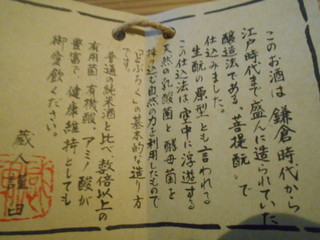 このお酒は鎌倉時代から
江戸時代まで盛んに造られていた
醸造法である、菩提酛で
仕込みました。
生酛の原型とも言われる
この仕込法は空中に浮遊する
天然の乳酸菌と酵母菌を
持つ込む自然の力を利用したもので
「どぶろく」の基本的な造り方
です。
普通純米酒と比べ数倍以上の
有用菌、有機酸、アミノ酸が
豊富で、健康維持としても
御愛飲ください。
蔵人謹白